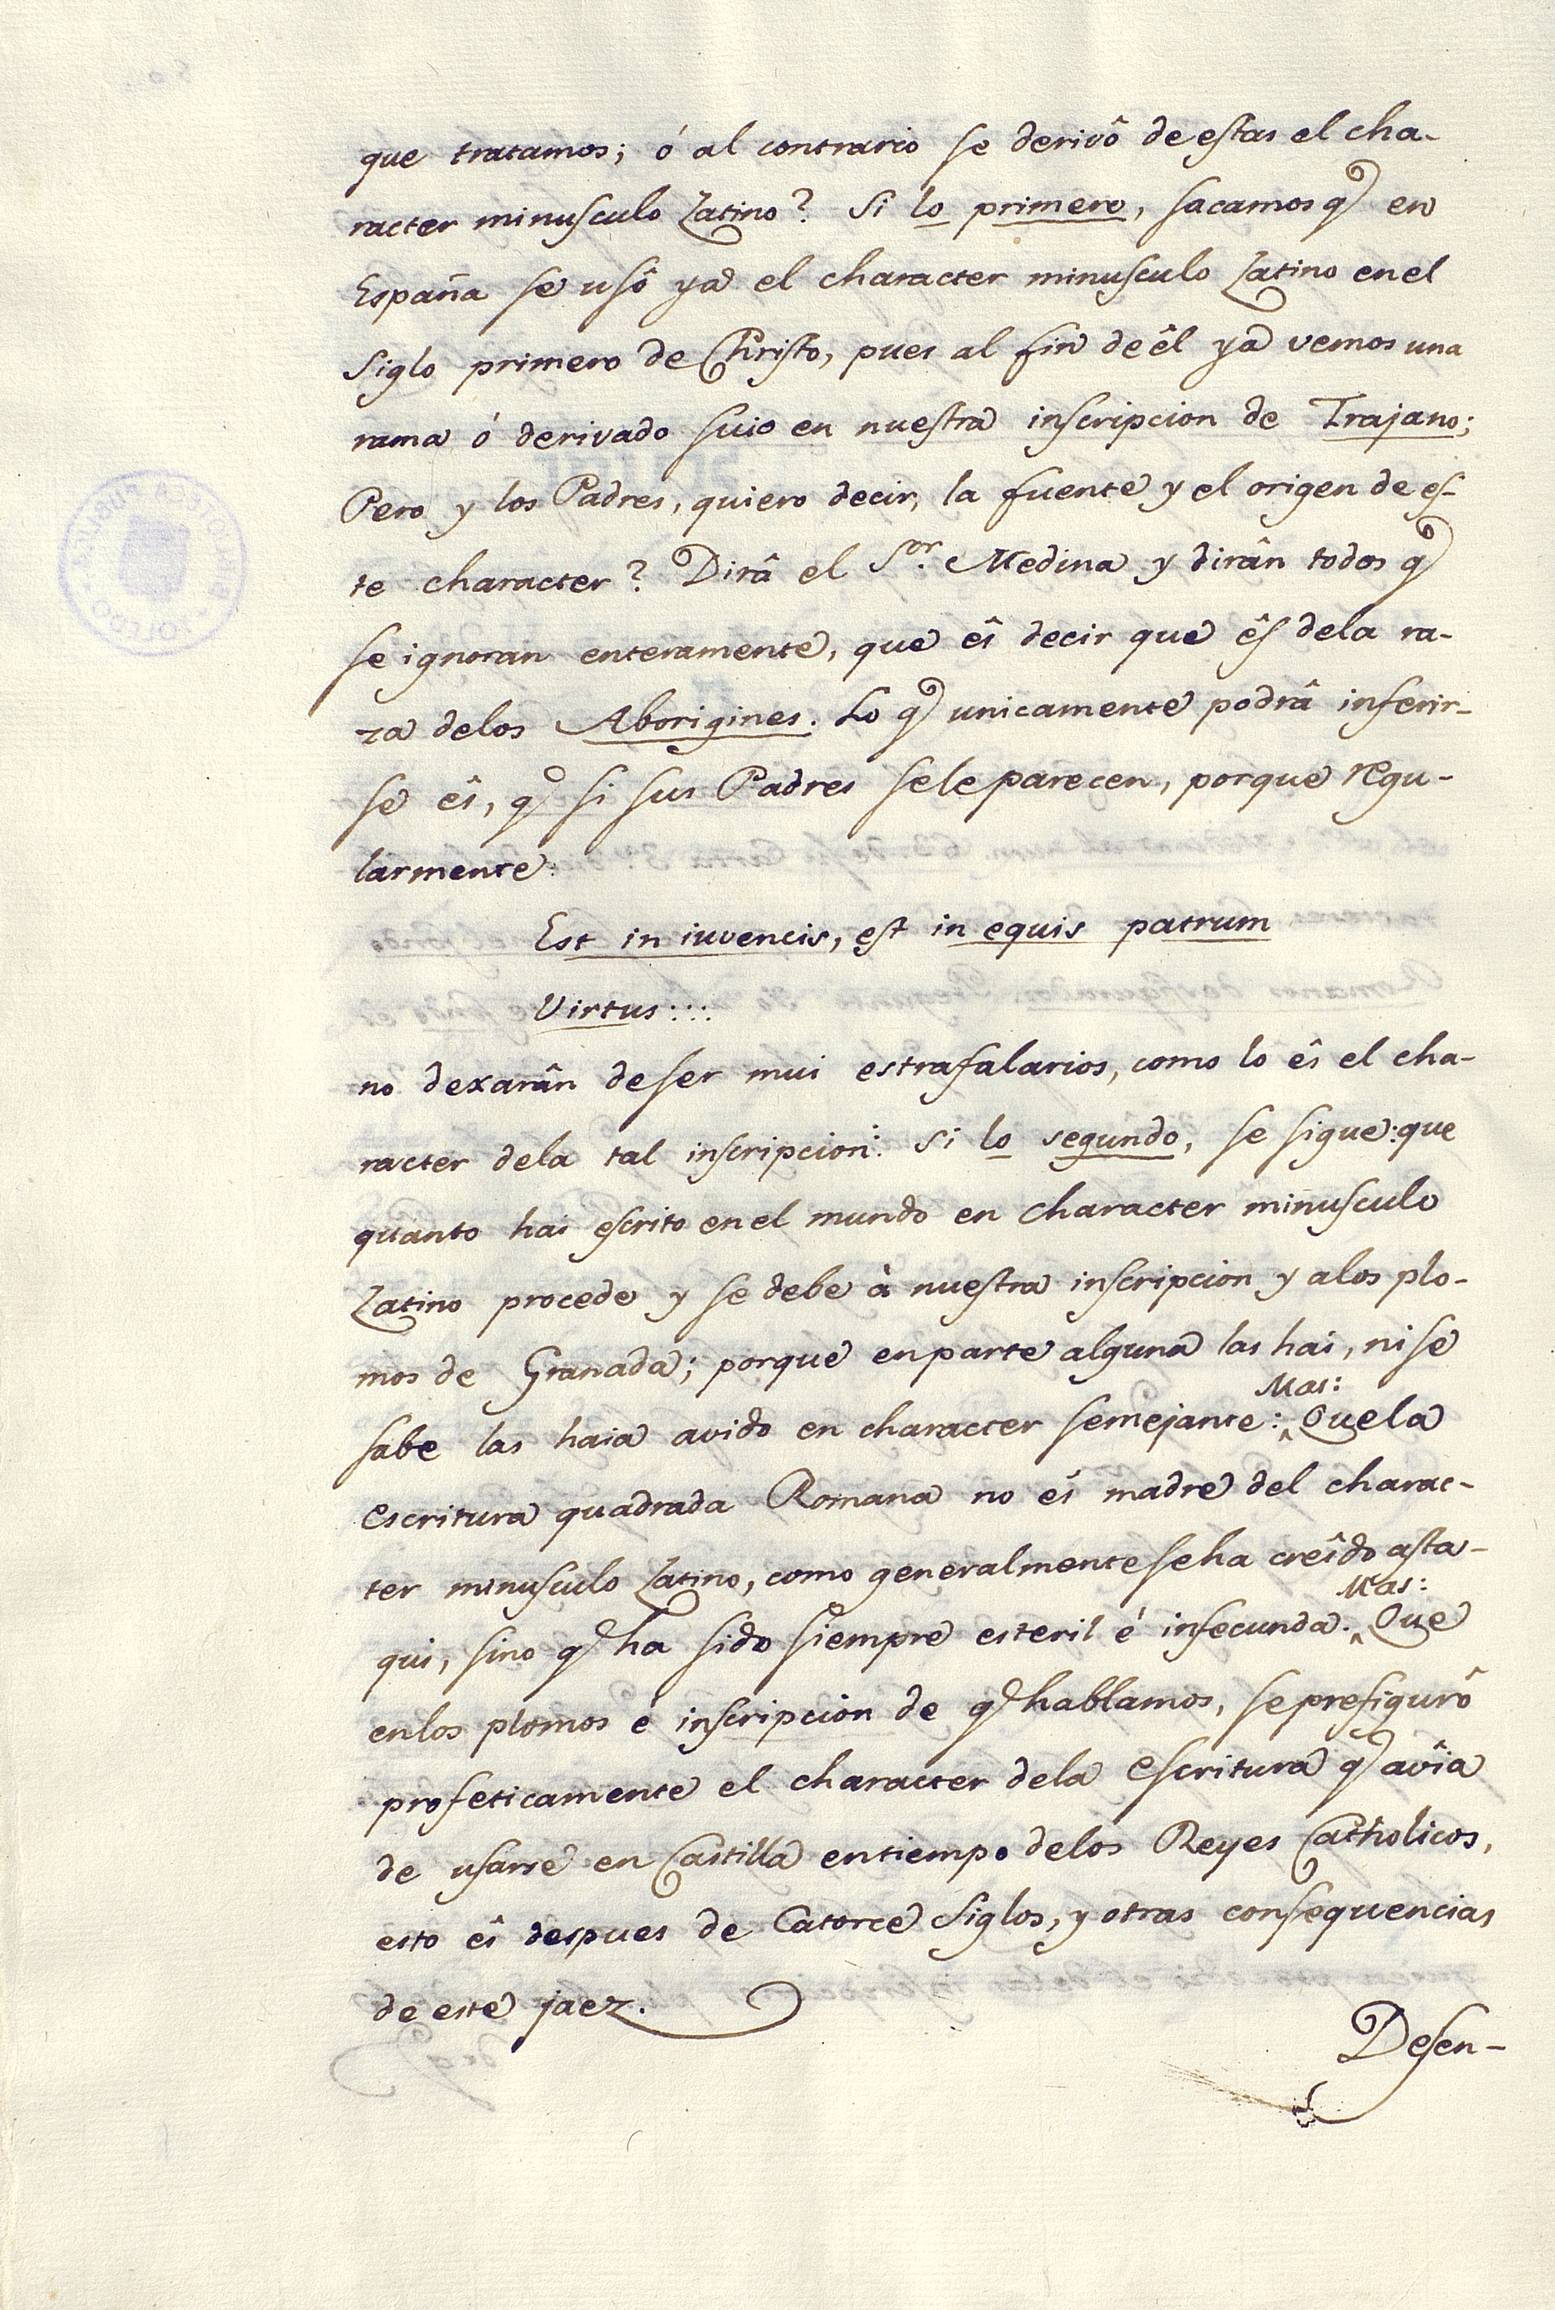 que tratamos; ó al contrario se derivô de estas el cha-
racter minusculo Latino? Si lo primero, sacamos q̃ en
España se usô ya el character minusculo Latino en el
Siglo primero de Christo, pues al fin de êl ya vemos una
rama ó derivado suio en nuestra inscripcion de Trajano;
Pero y los Padres, quiero decir, la fuente y el origen de es-
te character? Dirâ el Sor. Medina y dirân todos q̃
se ignoran enteramente, que ês decir que ês dela ra-
za delos Aborigines. Lo q̃ unicamente podrâ inferir-
se ês, q̃ si sus Padres sele parecen, porque regu-
larmente:
Est in iuvencis, est in equis patrum
Virtus::::
no dexarân de ser mui estrafalarios, como lo ês el cha-
racter dela tal inscripcion: Si lo segundo, se sigue: que
quanto hai escrito en el mundo en character minusculo
Latino procede y se debe à nuestra inscripcion y alos plo-
mos de Granada; porque en parte alguna las hai, ni se
Mas:
sabe las haia avido en character semejante: ‸ Que la
Escritura quadrada Romana no és madre del charac-
ter minusculo Latino, como generalmente se ha creîdo asta-
Mas:
qui, sino q̃ ha sido siempre esteril é infecunda. ‸ Que
enlos plomos é inscripcion de q̃ hablamos, se prefigurô
profeticamente el character dela Escritura q̃ avîa
de usarse en Castilla en tiempo delos Reyes Catholicos,
esto ês despues de Catorce Siglos, y otras consequencias
de este jaez.
Desen-